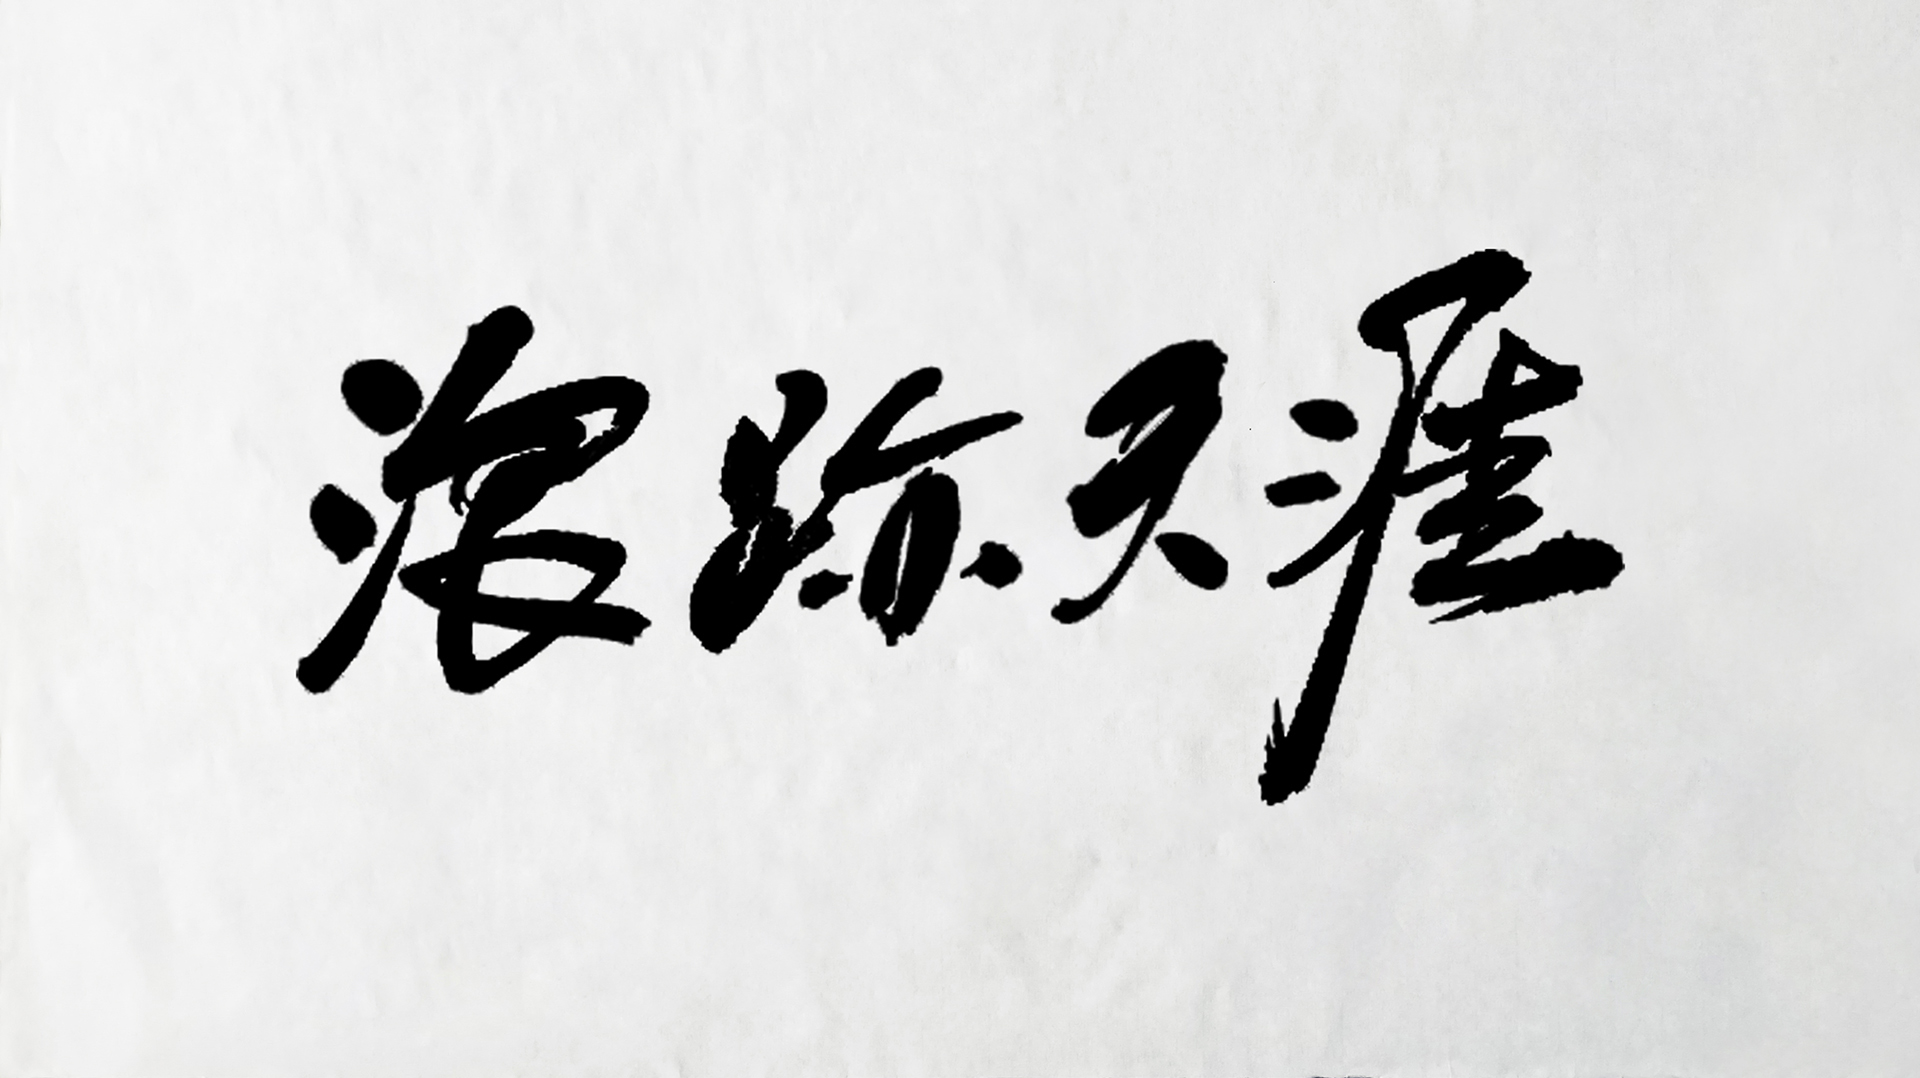 浪迹天涯